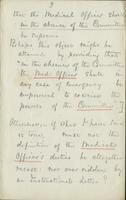 2
that the Medical Officer shall
in the absence of the Committee
be supreme
Perhaps this object might be
attained by providing that
"in the absence of the Committee
the Med: Officer shall in
any case of Emergency be
empowered to exercise the
powers of the Committee"
is trivial, must not the
definition of the Medical
Officers' duties be altogether
recast: nor over ridden by
an Instructional letter?